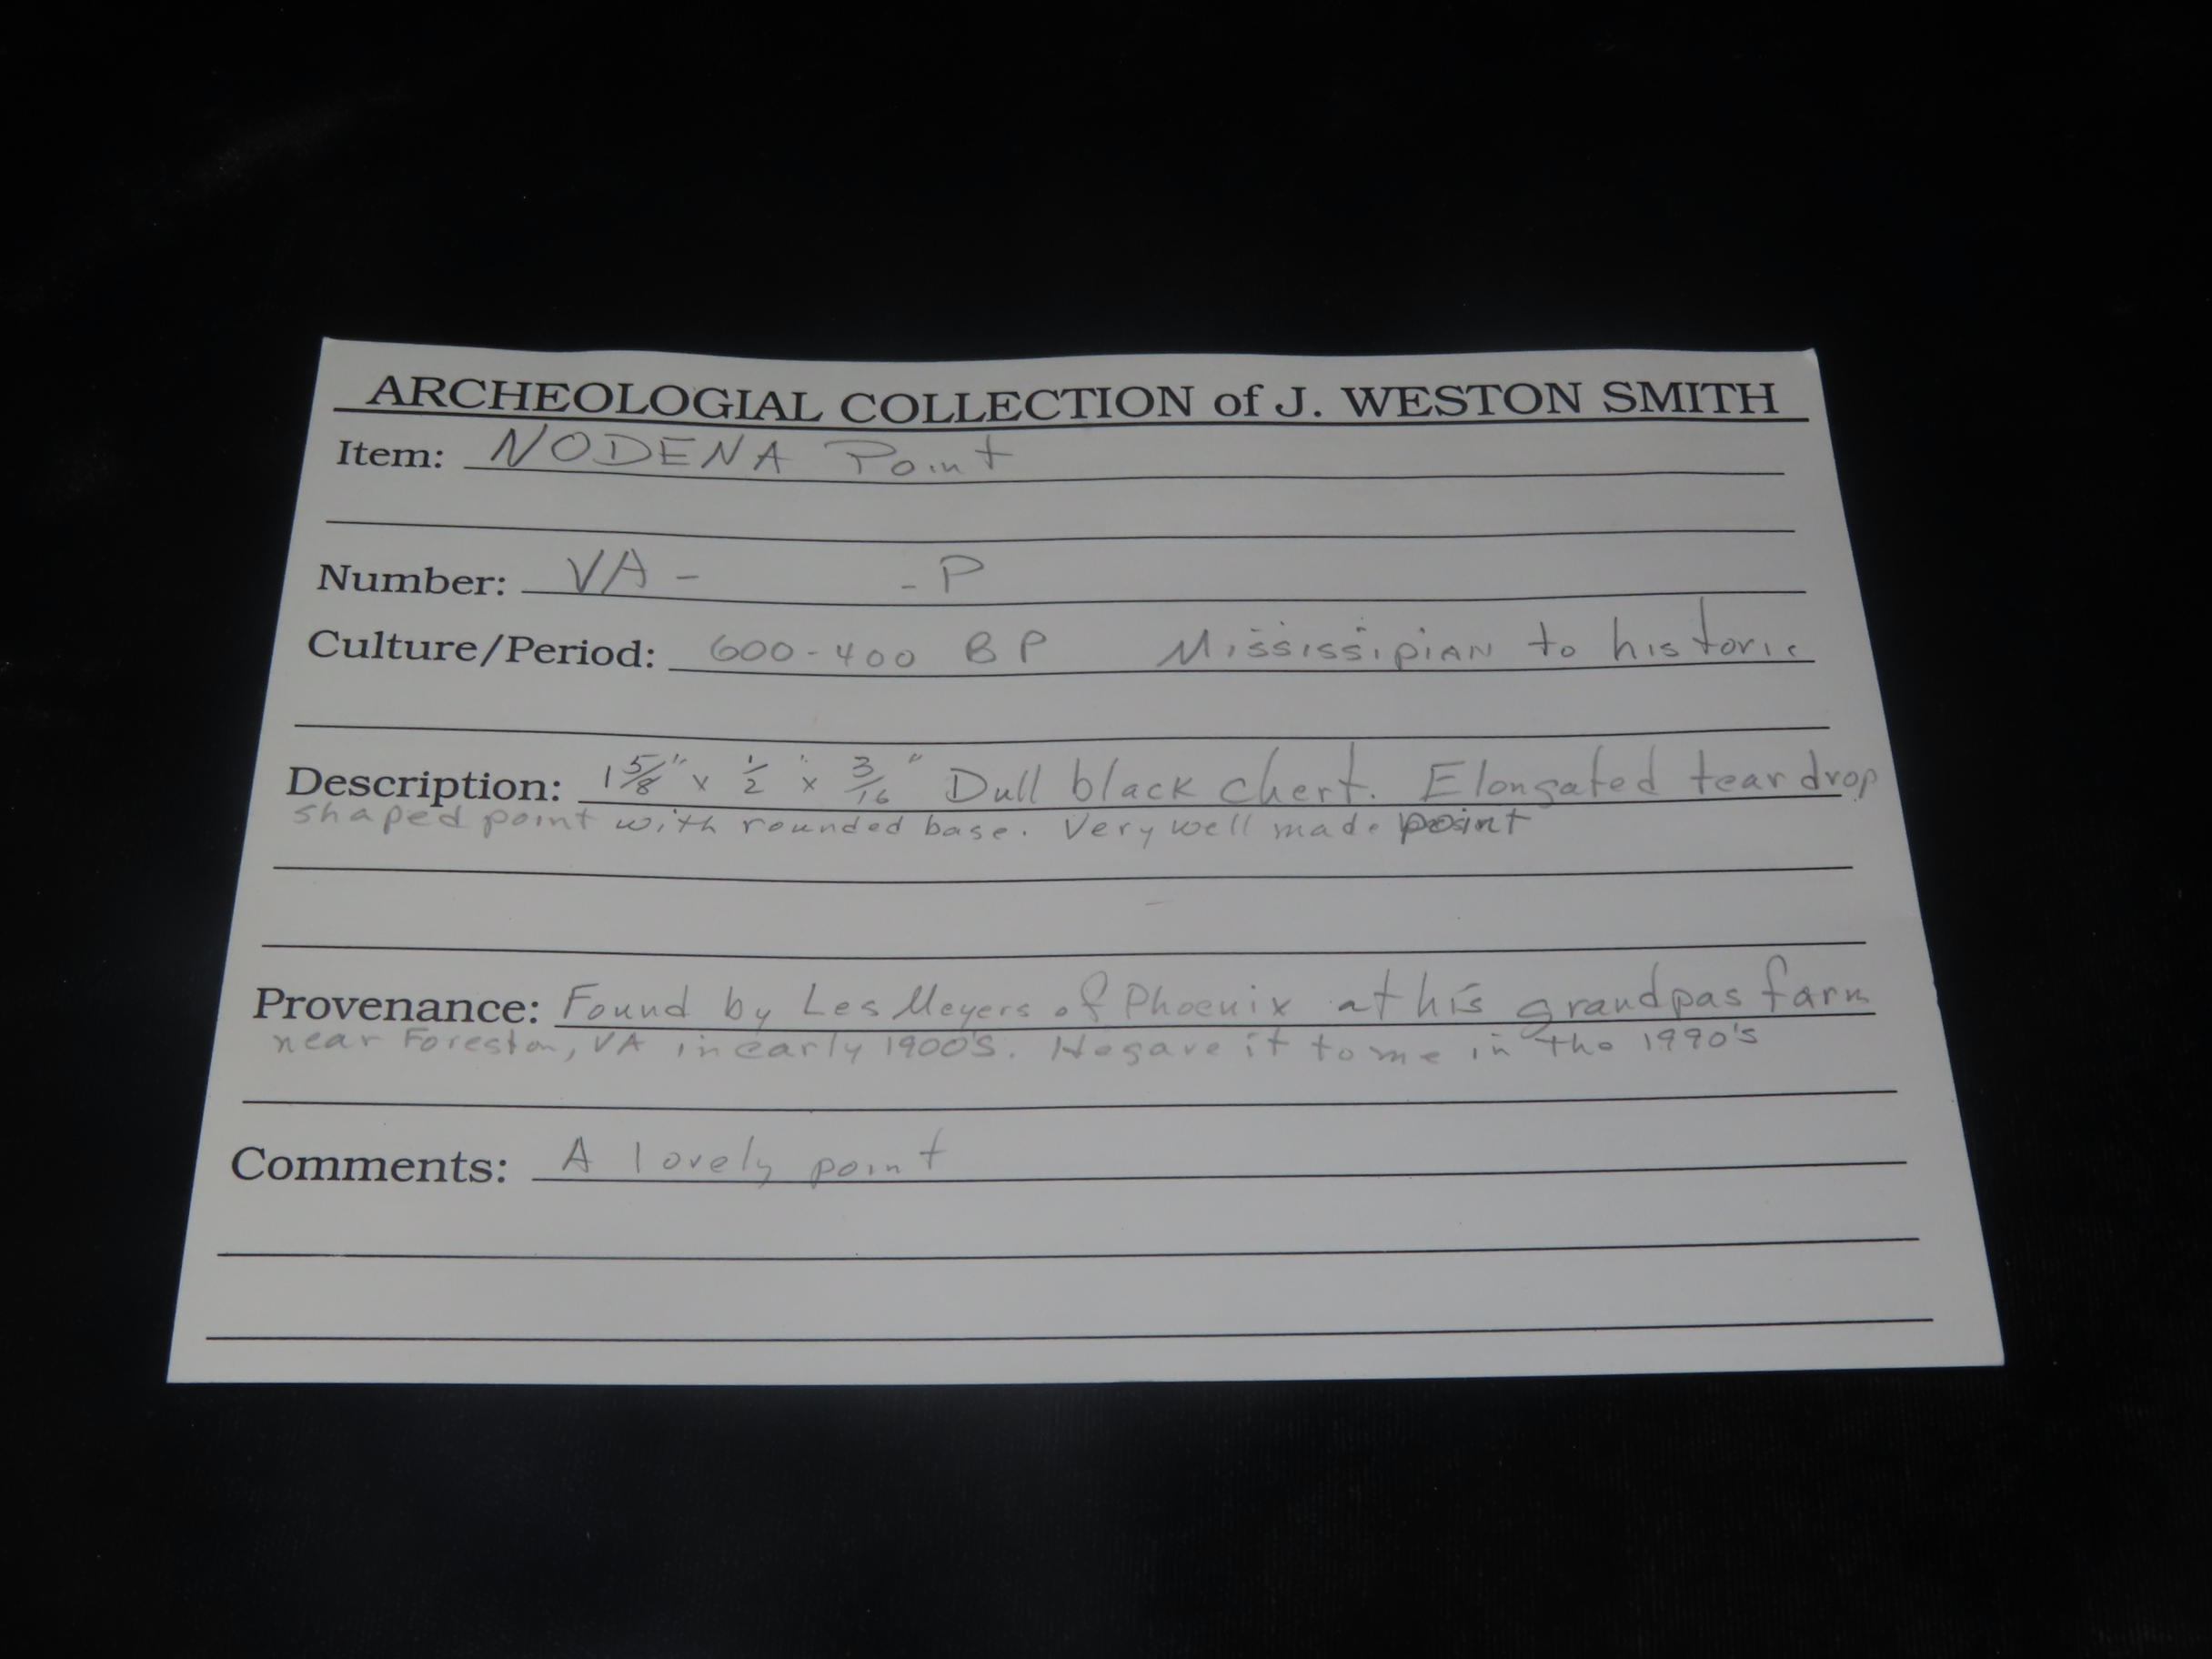 ARCHEOLOGIAL COLLECTION of J. WESTON SMITH
Item: NODENA Point
Number: VA - - P
Culture/Period: 600-400 BP Mississipian to historic
Description: 1 5/8" x 1/2" x 3/16" Dull black chert. Elongated teardrop
shaped point with rounded base. Very well made point
Provenance: Found by Les Meyers of Phoenix at his grandpas farm
near Foreston, VA in early 1900's. He gave it to me in the 1990's
Comments: A lovely point